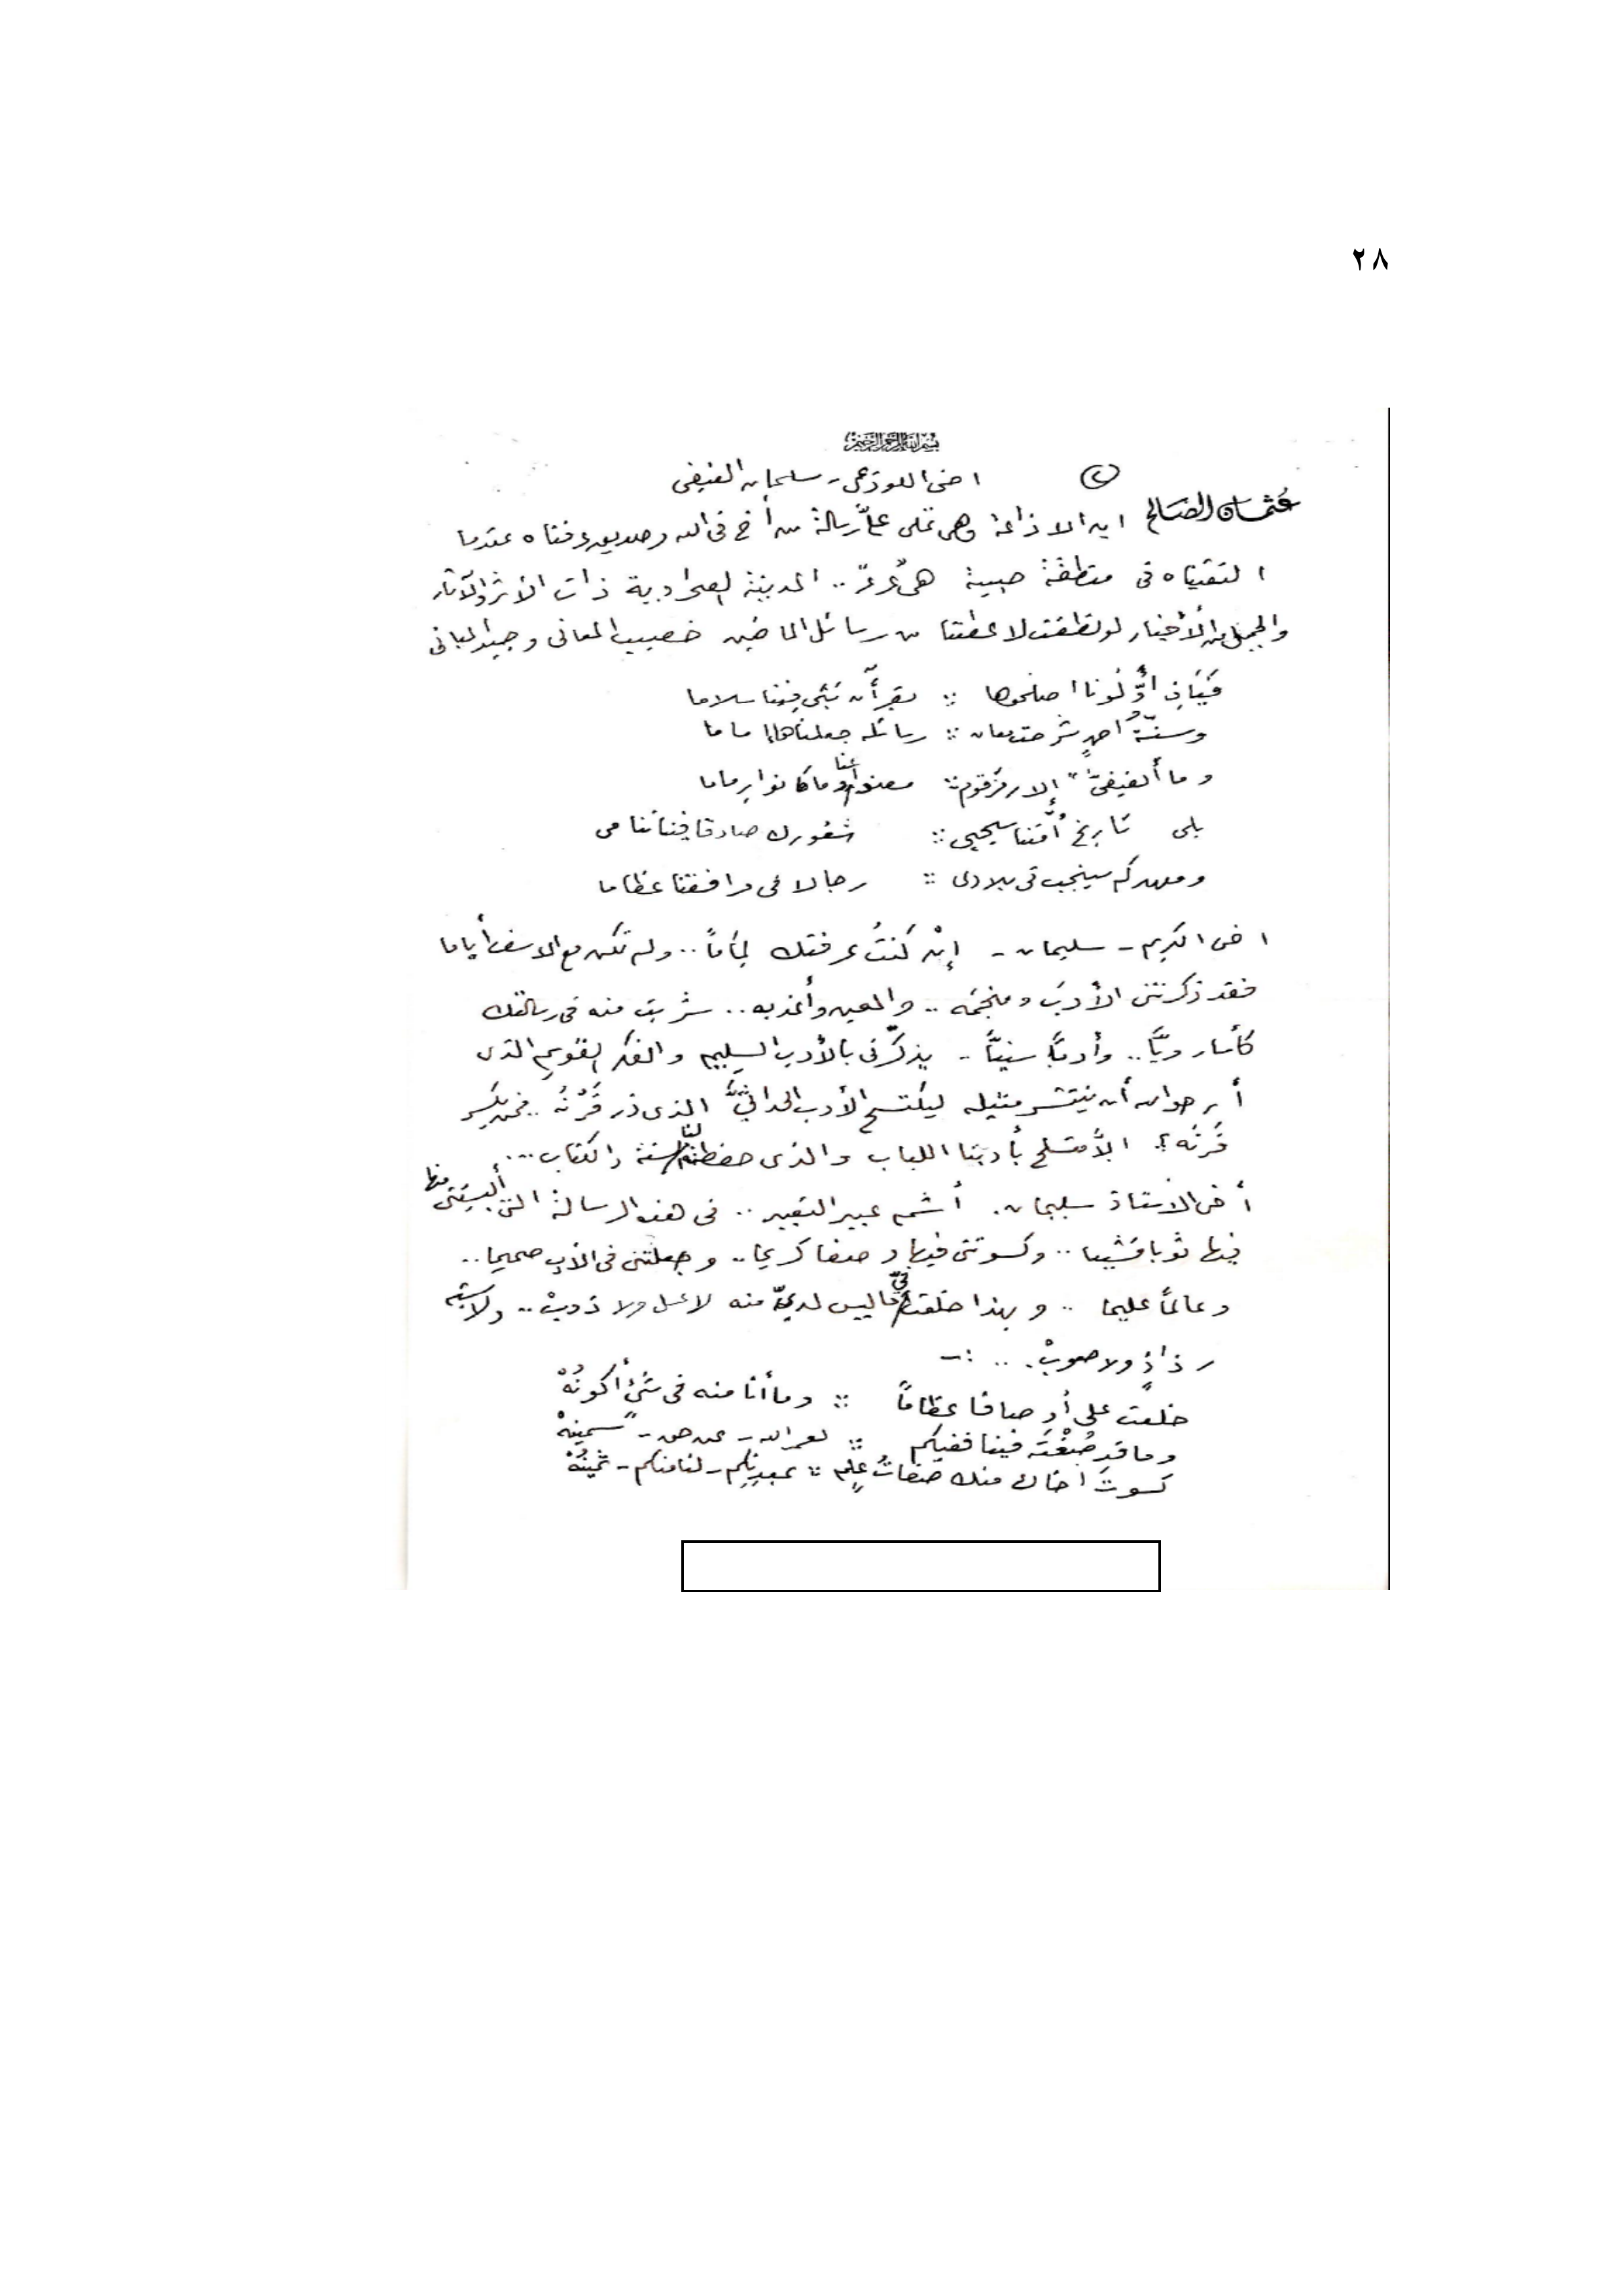 ٢٨
بسم الله الرحمن الرحيم
(٢) اخى اللوذعى - سليمان الفيفى
عثمان الصالح
ان الاذاعة وهى تملى علىّ رسالة من أخ فى الله وصديق عرفناه عندما
التقيناه فى منطقة حبيبة هى عرعر .. المدينة الصحراوية ذات الأثر والآثار
والجميل من الأخبار لو نطقت لأعطتنا من رسائل الماضين خصيب المعانى وجيد المبانى
أوّلونا اصلحوها :: بقرآن سلاما
وسنّة احمدٍ معان :: رسائله جعلناها إماما
وما "الفيفىّ" إلا رمز قوم :: عنا وما كانوا
بلى تاريخ أُمّتنا سيحيى :: شعورك صادقا فينا
ومعهدكم سينجب فى بلادى :: رجالا فى مرافقنا عظاما
اخى الكريم - سليمان - إنْ كنتُ عرفتك لِمَاماً .. ولم تكن مع الاسف أياما
فقد ذكرتنى الأدبَ ومنجمَه .. والمعين وأعذبه .. شربت منه فى رسالتك
كأسا رويًّا .. وأدبًا سنيًّا - يذكّرنى بالأدب السليم والفكر القويم الذى
أرجو الله أن ينتشر مثيله ليكتسح الأدب الحداثىَّ الذى ذر قَرْنُه .. فمن يكسر
قَرنَه ؟ إلاَّ متسلح بأدبنا اللباب والذى حفظته لنا السنة والكتاب ...
أخى الاستاذ سليمان . أشم عبير التعبير .. فى هذه الرسالة التى ألبستنى منها
فيها ثوبا قشيبا .. وكسوتنى فيها وصفا كريما .. وجعلتنى فى الأدب صميما ..
وعالماً عليما .. وبهذا خلقت فىّ ما ليس لدىّ منه لا عسل ولا ذوبْ .. ولا
رذاذٍ ولا صوبْ . .. :-
خلعت على أوصافا عظاماً :: وما أنا منه فى شئٍ أكونُهْ
وما قد صُغْتَه فينا ففيكم :: لعمر الله - سمينهْ
كسوتَ اخاك منك صفاتُ علمٍ :: لنا منكم - ثمينُهْ